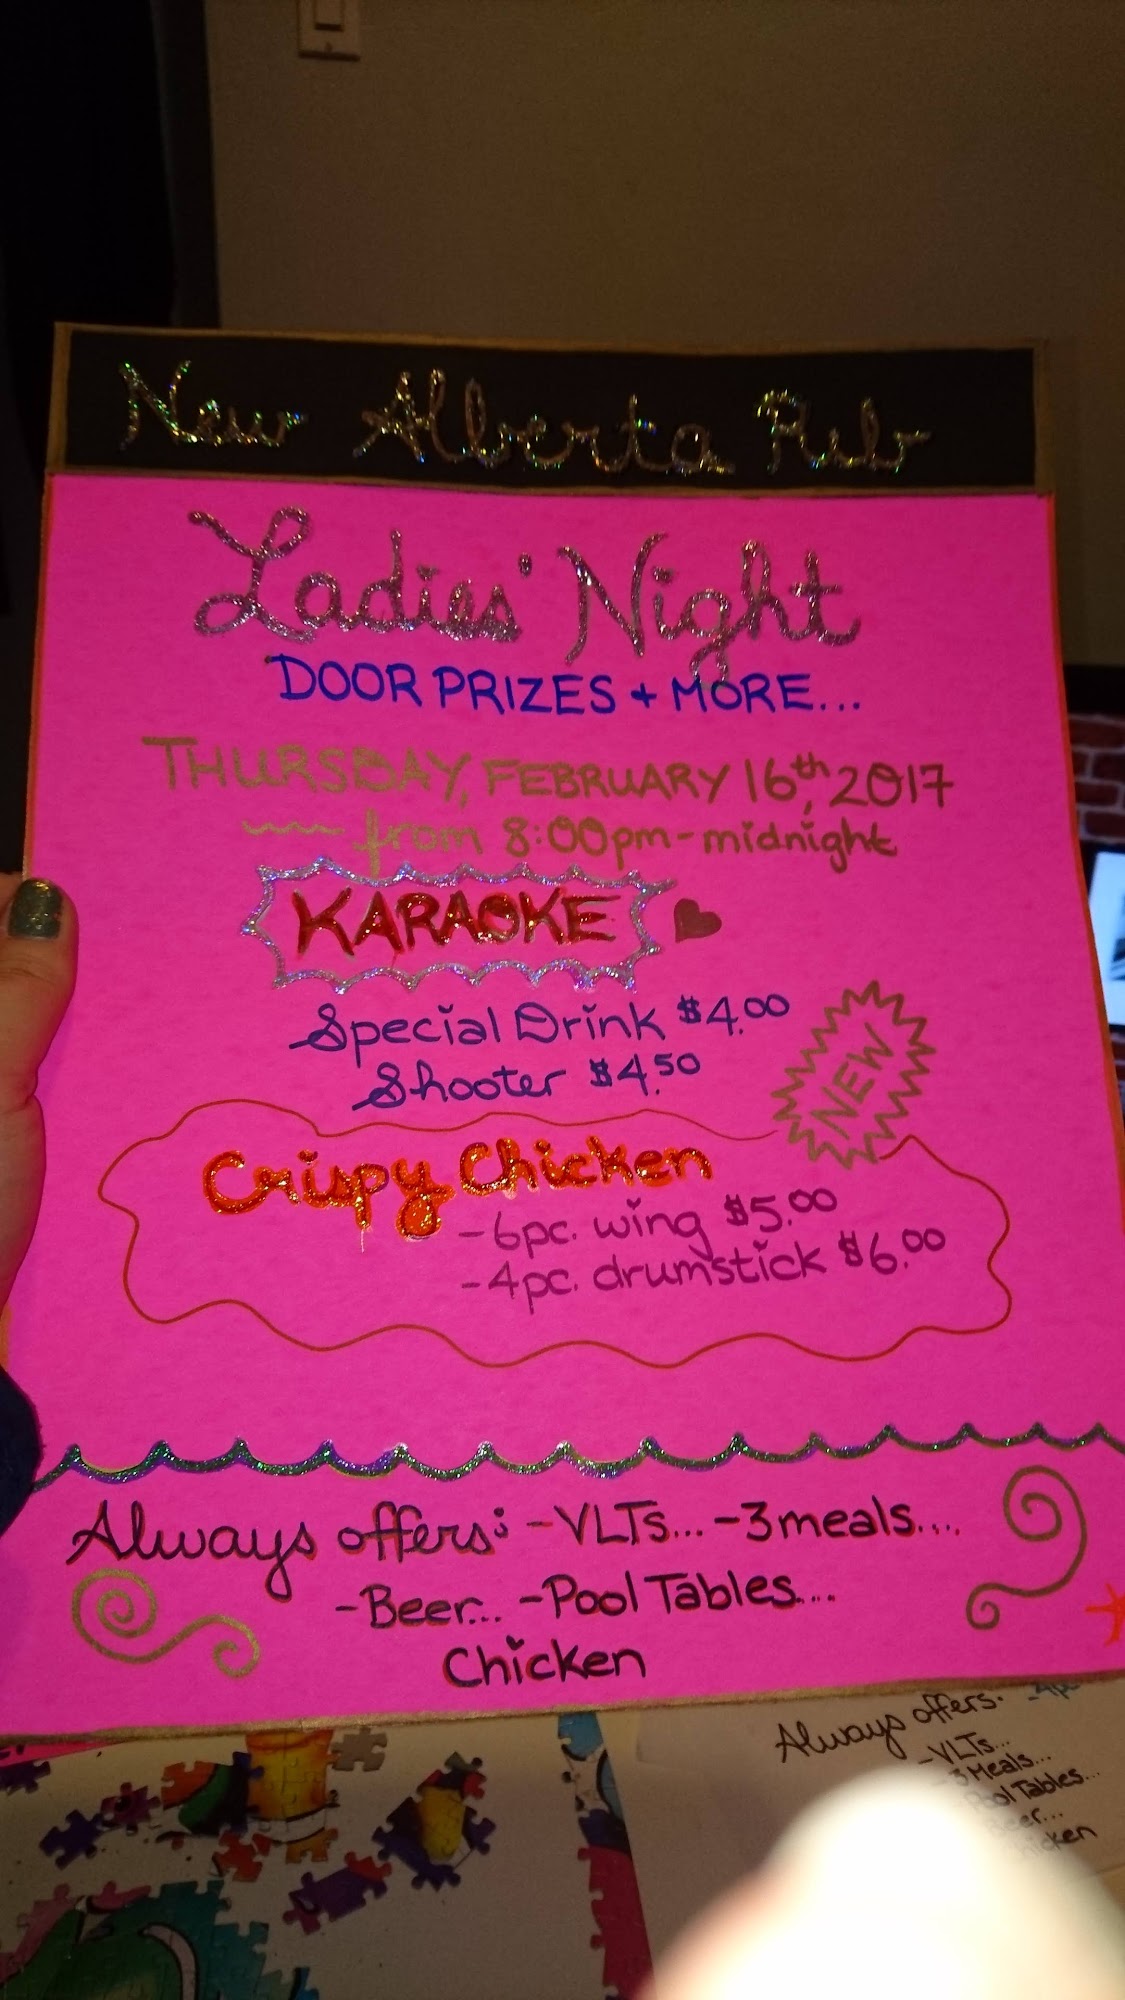 New Alberta Pub
Ladies' Night
DOOR PRIZES + MORE...
THURSDAY, FEBRUARY 16th, 2017
from 8:00pm - midnight
KARAOKE
Special Drink $4.00
Shooter $4.50
NEW
Crispy Chicken
-6pc. wing $5.00
-4pc. drumstick $6.00
Always offers: -VLTs... -3 meals....
-Beer... -Pool Tables....
Chicken
Always offers. -4pc
-VLTs...
-3 Meals...
Tables...